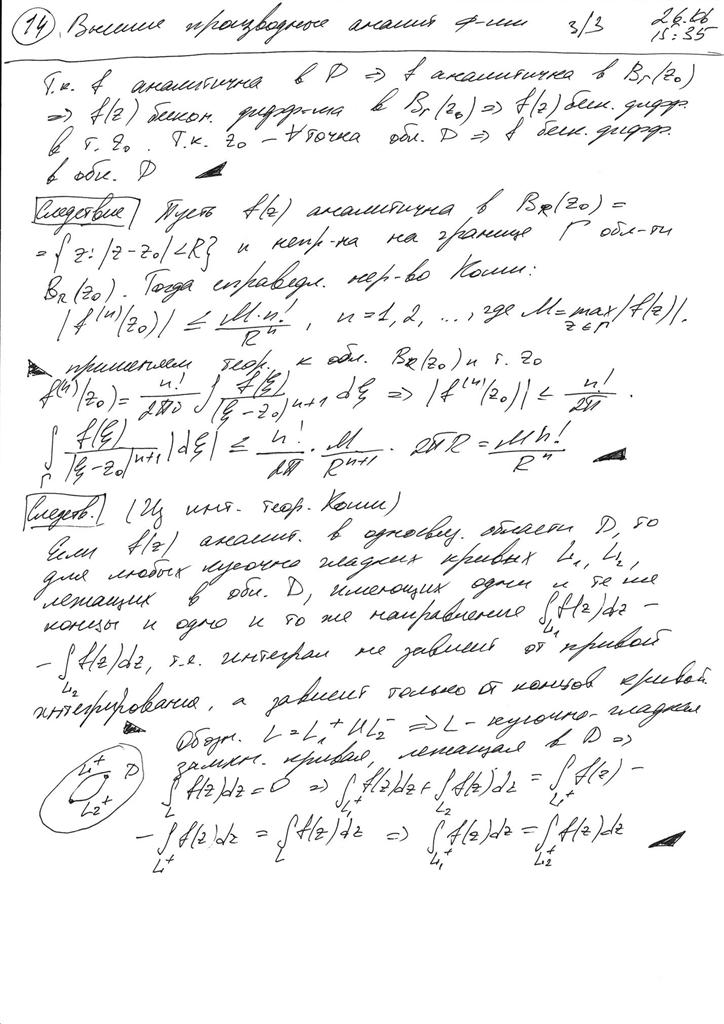 14 Высшие производные аналит ф-ии 3/3 26.06 15:35
Т.к. f аналитична в D => f аналитична в Br(z0)
=> f(z) бескон. дифф-ма в Br(z0) => f(z) беск. дифф.
в т. z0. Т.к. z0 – ∀ точка обл. D => f беск. дифф.
в обл. D
Следствие Пусть f(z) аналитична в BR(z0) =
= {z: |z-z0|<R} и непр-на на границе Γ обл-ти
BR(z0). Тогда справедл. нер-во Коши:
|f^(n)(z0)| ≤ M·n!/R^n, n=1,2, ..., где M=max z∈Γ |f(z)|.
применяем теор. к обл. BR(z0) и т. z0
f^(n)(z0) = n!/2πi ∫ f(ξ)/(ξ-z0)^n+1 dξ => |f^(n)(z0)| ≤ n!/2π ·
∫Γ f(ξ)/|ξ-z0|^n+1 |dξ| ≤ n!/2π · M/R^n+1 · 2πR = Mn!/R^n
Следств. (Из инт. теор. Коши)
Если f(z) аналит. в односвяз. области D, то
для любых кусочно гладких кривых L1, L2,
лежащих в обл. D, имеющих одни и те же
концы и одно и то же направление ∫L1 f(z)dz –
– ∫L2 f(z)dz, т.е. интеграл не зависит от кривой
интегрирования, а зависит только от концов кривой.
Обозн. L = L1^+ U L2^- => L – кусочно-гладкая
замкн. кривая, лежащая в D =>
L1^+ D L2^+
∫L f(z)dz = 0 => ∫L1^+ f(z)dz + ∫L2^- f(z)dz = ∫L1^+ f(z) –
– ∫L^+ f(z)dz = ∫L f(z)dz => ∫L1^+ f(z)dz = ∫L2^+ f(z)dz